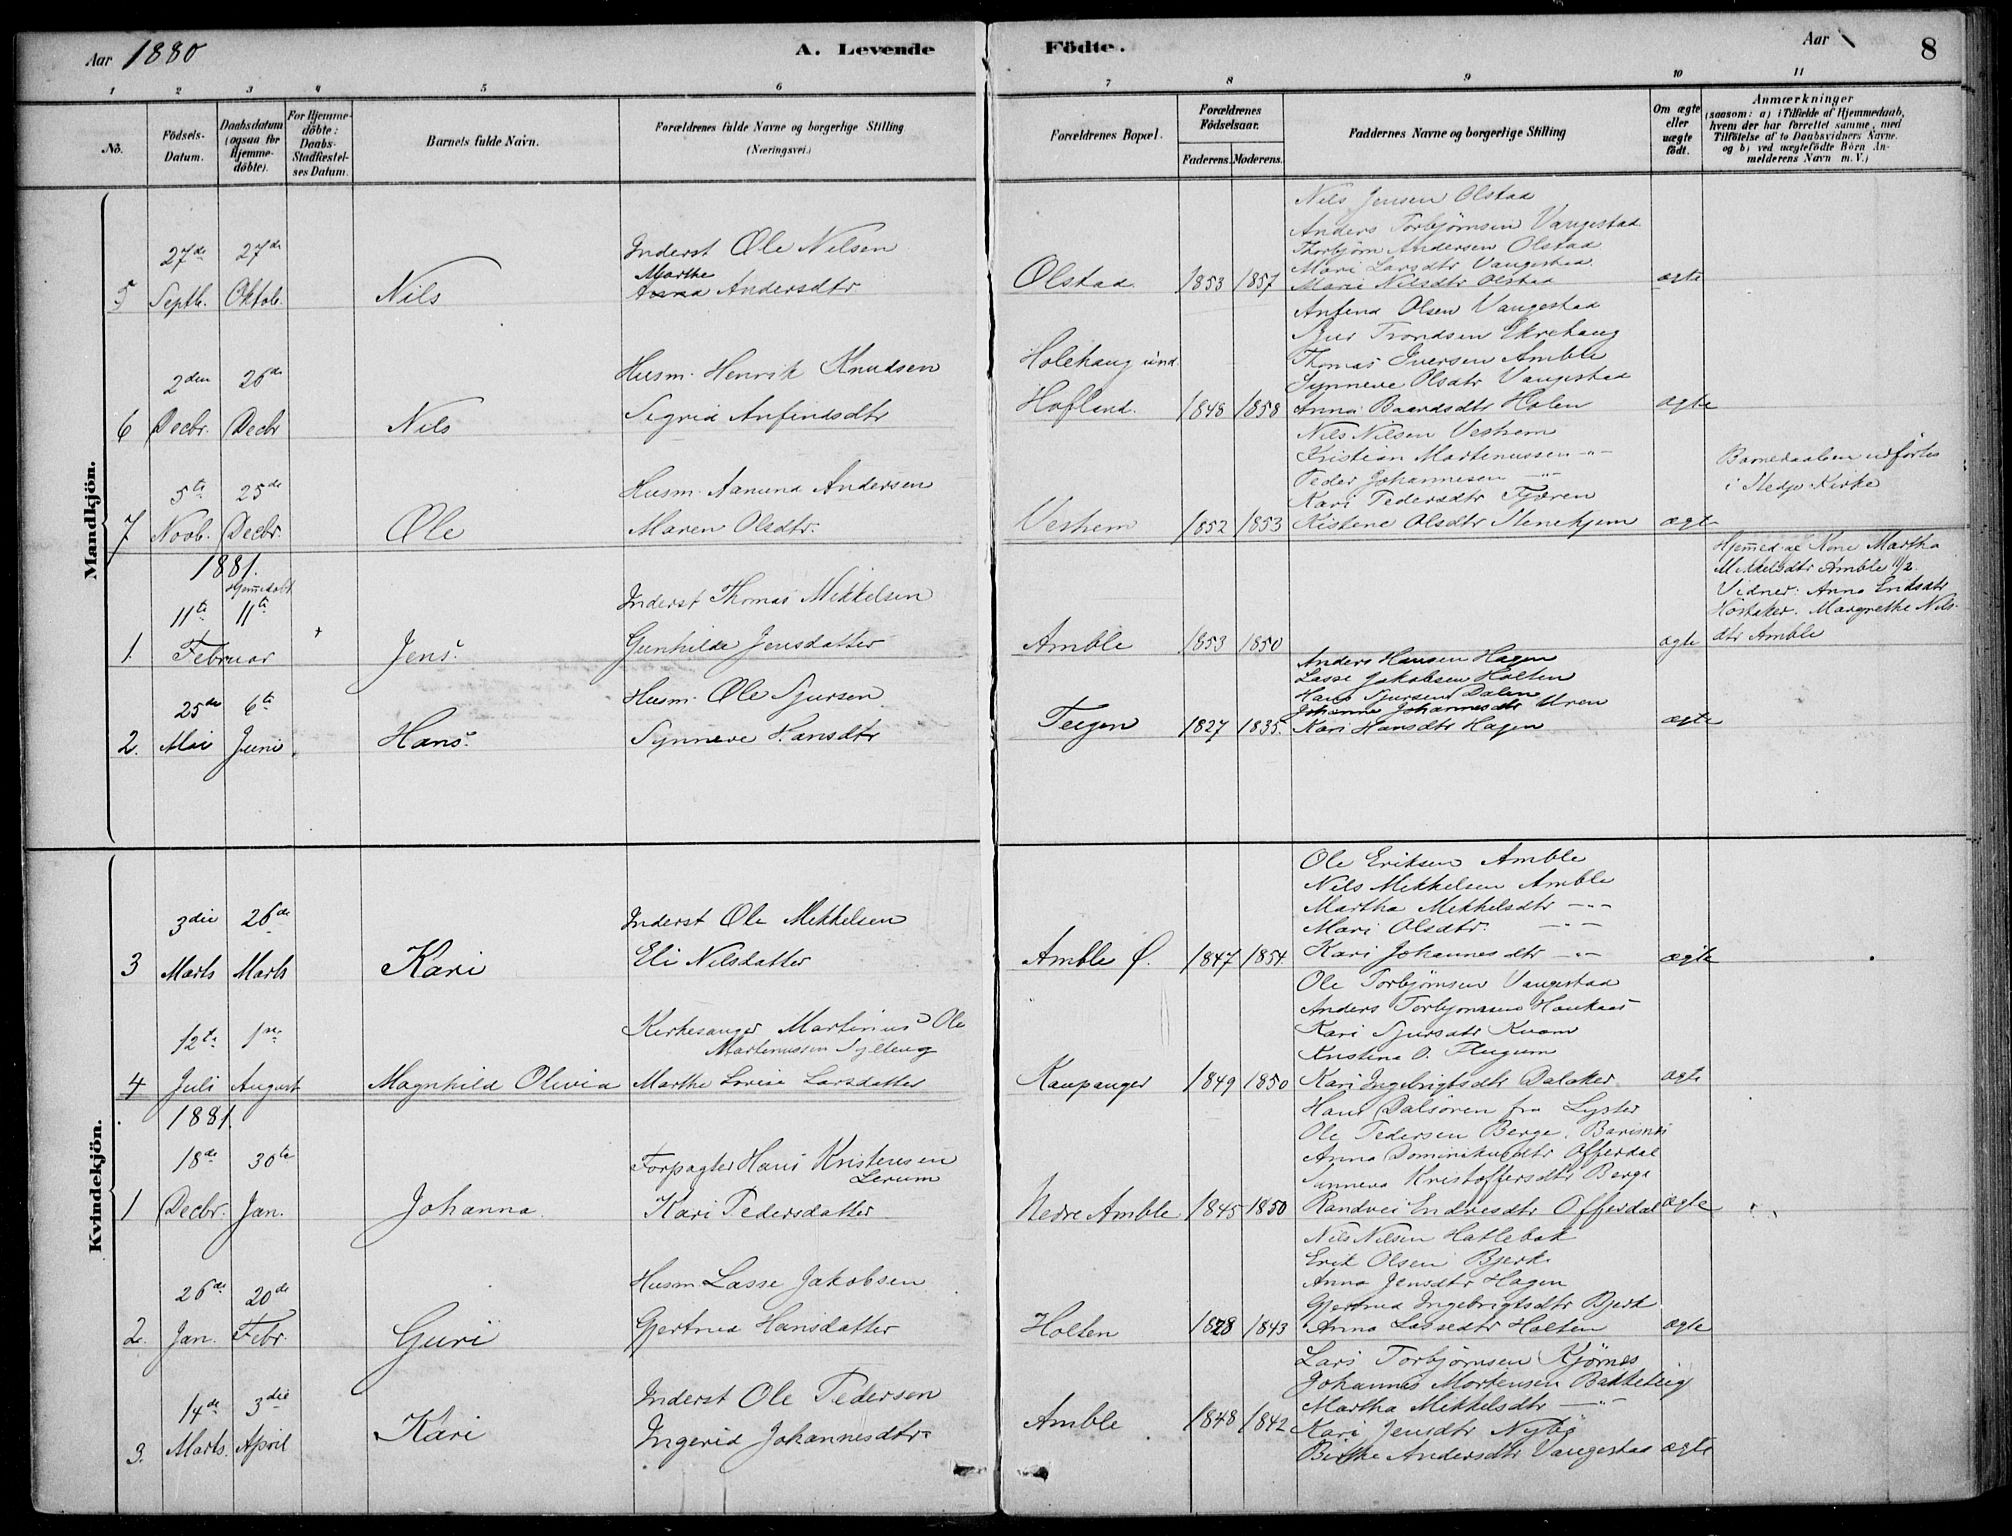 Aar 1880
A. Levende
Födte.
Aar
8
1 2 3 4 5 6 7 8 9 10 11
No.
Födsels-
Datum.
Daabsdatum
(ogsaa for
Hjemme-
döbte).
For Hjemme-
döbte:
Daabs-
Stadfæstel-
ses Datum.
Barnets fulde Navn.
Forældrenes fulde Navne og borgerlige Stilling
(Næringsvei.)
Forældrenes Bopæl.
Forældrenes
Födselsaar.
Faderens. Moderens.
Faddernes Navne og borgerlige Stilling
Om ægte
eller
uægte
födt.
Anmærkninger
(saasom: a) i Tilfælde af Hjemmedaab,
hvem der har forrettet samme, med
Tilföielse af to Daabsvidners Navne.
og b) ved uægtefödte Börn An-
melderens Navn m. V.)
Mandkjön.
5
27de Septb.
27de Oktob.
Nils
Inderst Ole Nilsen
Marthe
Anna Andersdtr.
Olstad
1853 1857
Nils Jensen Olstad
Anders Torbjørnsen Vangestad
Thorbjørn Andersen Olstad
Mari Larsdtr Vangestad
Marie Nilsdtr Olstad
ægte
6
2den Decbr.
26de Decbr
Nils
Husm. Henrik Knudsen
Sigrid Anfindsdtr
Holehaug und.
Hofland.
1848 1858
Anfind Olsen Vangestad
Sjur Trondsen Ekrehaug
Thomas Iversen Amble
Synneve Olsdtr Vangestad
Anna Baardsdtr Holen
ægte
7
5te Novb.
25de Decbr.
Ole
Husm. Aamund Andersen
Maren Olsdtr.
Veshem
1852 1853
Nils Nilsen Veshem
Kristian Martenussen -"-
Peder Johannesen -"-
Kari Pedersdtr Fjæren
Kistene Olsdtr Stenehjem
ægte
Barnedaaben udførtes
i Stedje Kirke
1881.
1.
11te 11te
Hjemmedøbt
Februar
Jens.
Inderst Thomas Mikkelsen
Gunhilde Jensdatter
Amble
1853 1850
ægte
Hjemmed. af Kone Martha
Mikkelsdtr Amble 11/2.
Vidner: Anna Eriksdtr
Hostaker. Margrethe Nils-
dtr Amble
2.
25de Mai
6te Juni
Hans.
Husm. Ole Sjursen
Synneve Hansdtr
Teigen
1827 1835.
Anders Hansen Hagen
Lasse Jakobsen Holten
Hans Sjursen Dalen
Johanne Johannesdtr Uren
Kari Hansdtr Hagen
ægte
Kvindekjön.
3
3die Marts
26de Marts
Kari
Inderst Ole Mikkelsen
Eli Nilsdatter
Amble Ø.
1847 1854.
Ole Eriksen Amble
Nils Mikkelsen Amble
Martha Mikkelsdtr -"-
Mari Olsdtr. -"-
Kari Johannesdtr -"-
ægte
4
12te Juli
1ste August
Magnhild Olivia
Kirkesanger Martinius Ole
Martenussen Sylteng
Marthe Lovise Larsdatter
Kaupanger
1849 1850
Ole Torbjørnsen Vangestad
Anders Torbjørnsen Haukaas
Kari Sjursdtr Kvam
Kristina O. Flugum
Kari Ingebrigtsdtr Dalaker
ægte
1881.
1
18de Decbr.
30te Jan.
Johanna
Forpagter Hans Kristensen
Lerum
Kari Pedersdatter
Nedre Amble
1845 1850
Hans Dalsøren fra Lyster
Ole Pedersen Berge, Barsnes
Anna Dominikusdtr Offerdal
Synneva Kristoffersdtr Berge
Randvei Endresdtr Offerdal
ægte
2.
26de Jan.
20de Febr.
Guri
Husm Lasse Jakobsen
Gjertrud Hansdatter
Holten
1828 1843
Nils Nilsen Hatlebak
Erik Olsen Bjerk
Anna Jensdtr Hagen
Gjertrud Ingebrigtsdtr Bjerk
Anna Lassedtr Holten
ægte
3.
14de Marts.
3die April
Kari
Inderst Ole Pedersen
Ingerid Johannesdtr
Amble
1848 1842
Lars Torbjørnsen Kjørnes
Johannes Mortensen Bakketeig
Martha Mikkelsdtr -"-
Kari Jensdtr Nybø
Birthe Andersdtr Vangestad
ægte